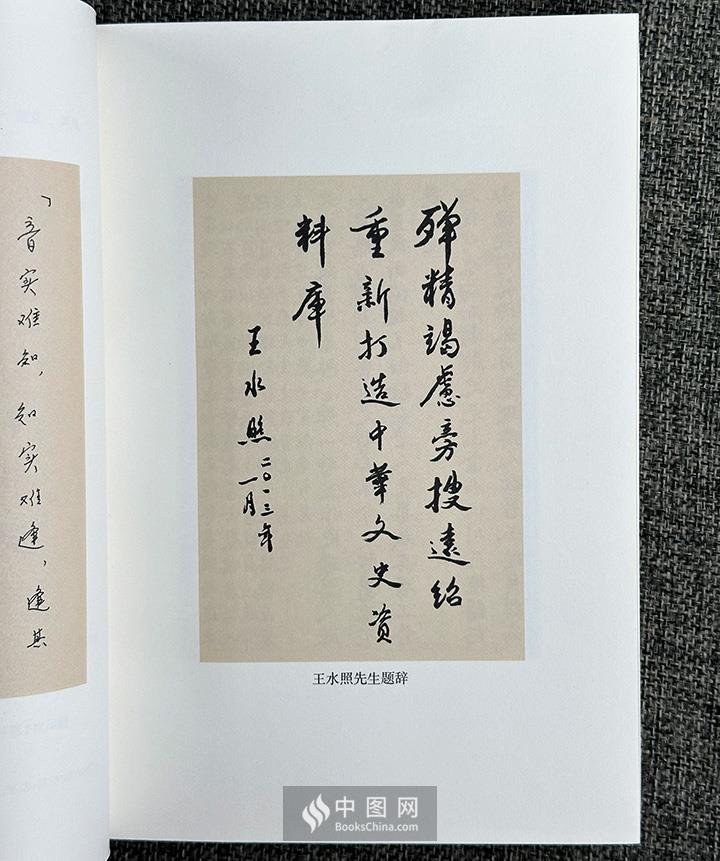 殫精竭慮旁搜遠紹
重新打造中華文史資
料庫
王水照二〇一三年
一月
王水照先生题辞
「音实难知，知实难逢，逢其
中图网
BooksChina.com